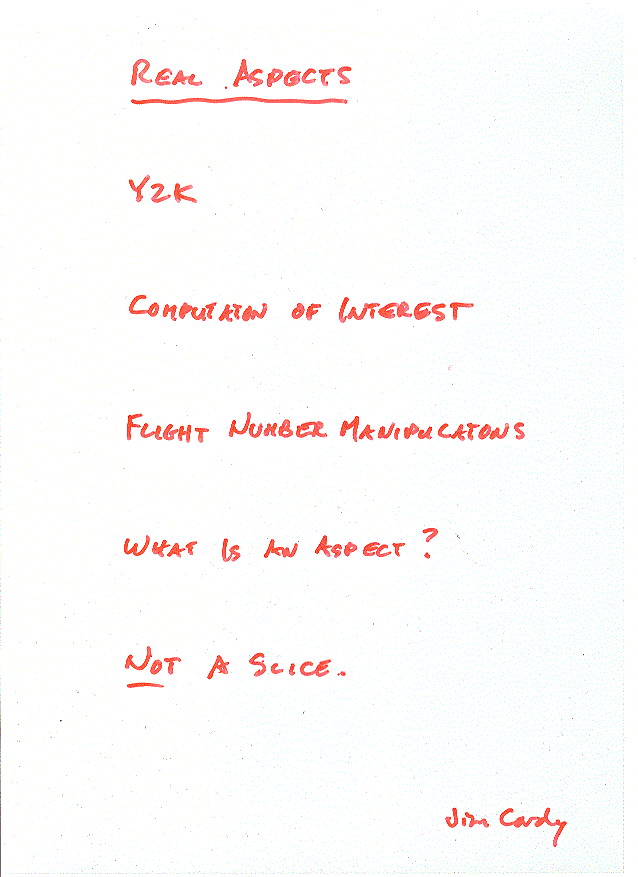 REAL ASPECTS
Y2K
COMPUTATION OF INTEREST
FLIGHT NUMBER MANIPULATIONS
WHAT IS AN ASPECT?
NOT A SLICE.
Jim Cordy